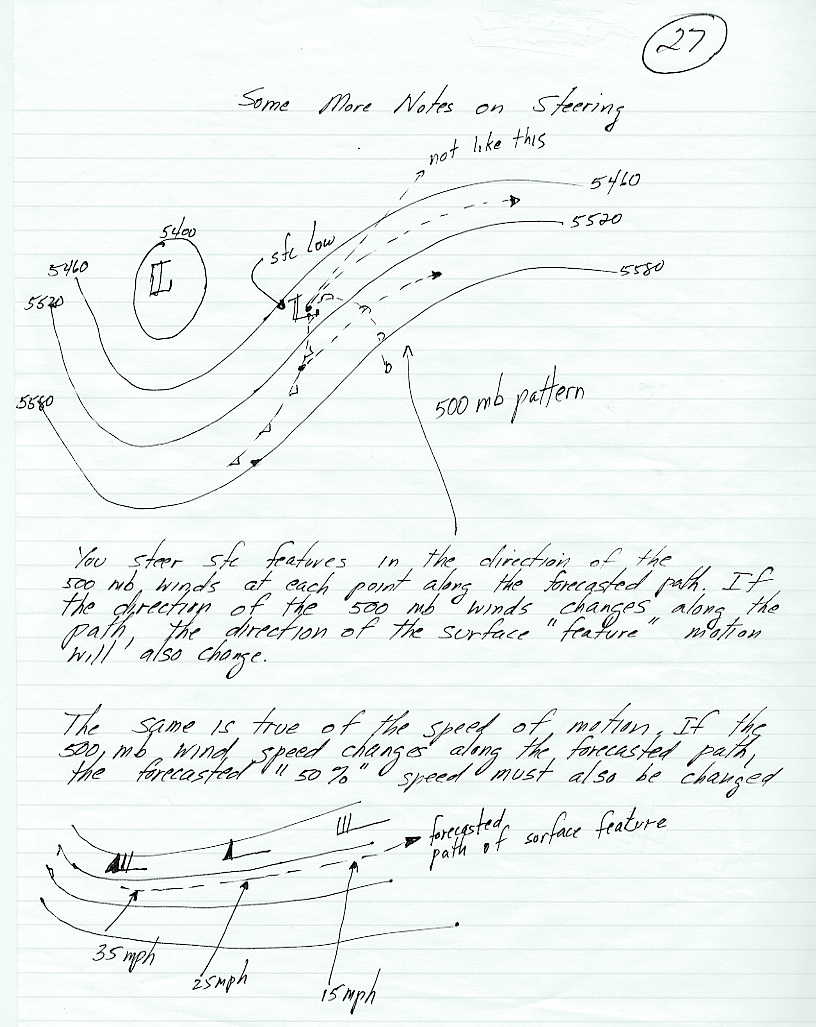 27
Some More Notes on Steering
not like this
5460
5400
5520
sfc low
5460
L
5580
5520
L
5580
500 mb pattern
You steer sfc features in the direction of the
500 mb winds at each point along the forecasted path. If
the direction of the 500 mb winds changes along the
path, the direction of the surface "feature" motion
will also change.
The same is true of the speed of motion. If the
500 mb wind speed changes along the forecasted path,
the forecasted "50%" speed must also be changed
forecasted
path of surface feature
35 mph
25 mph
15 mph